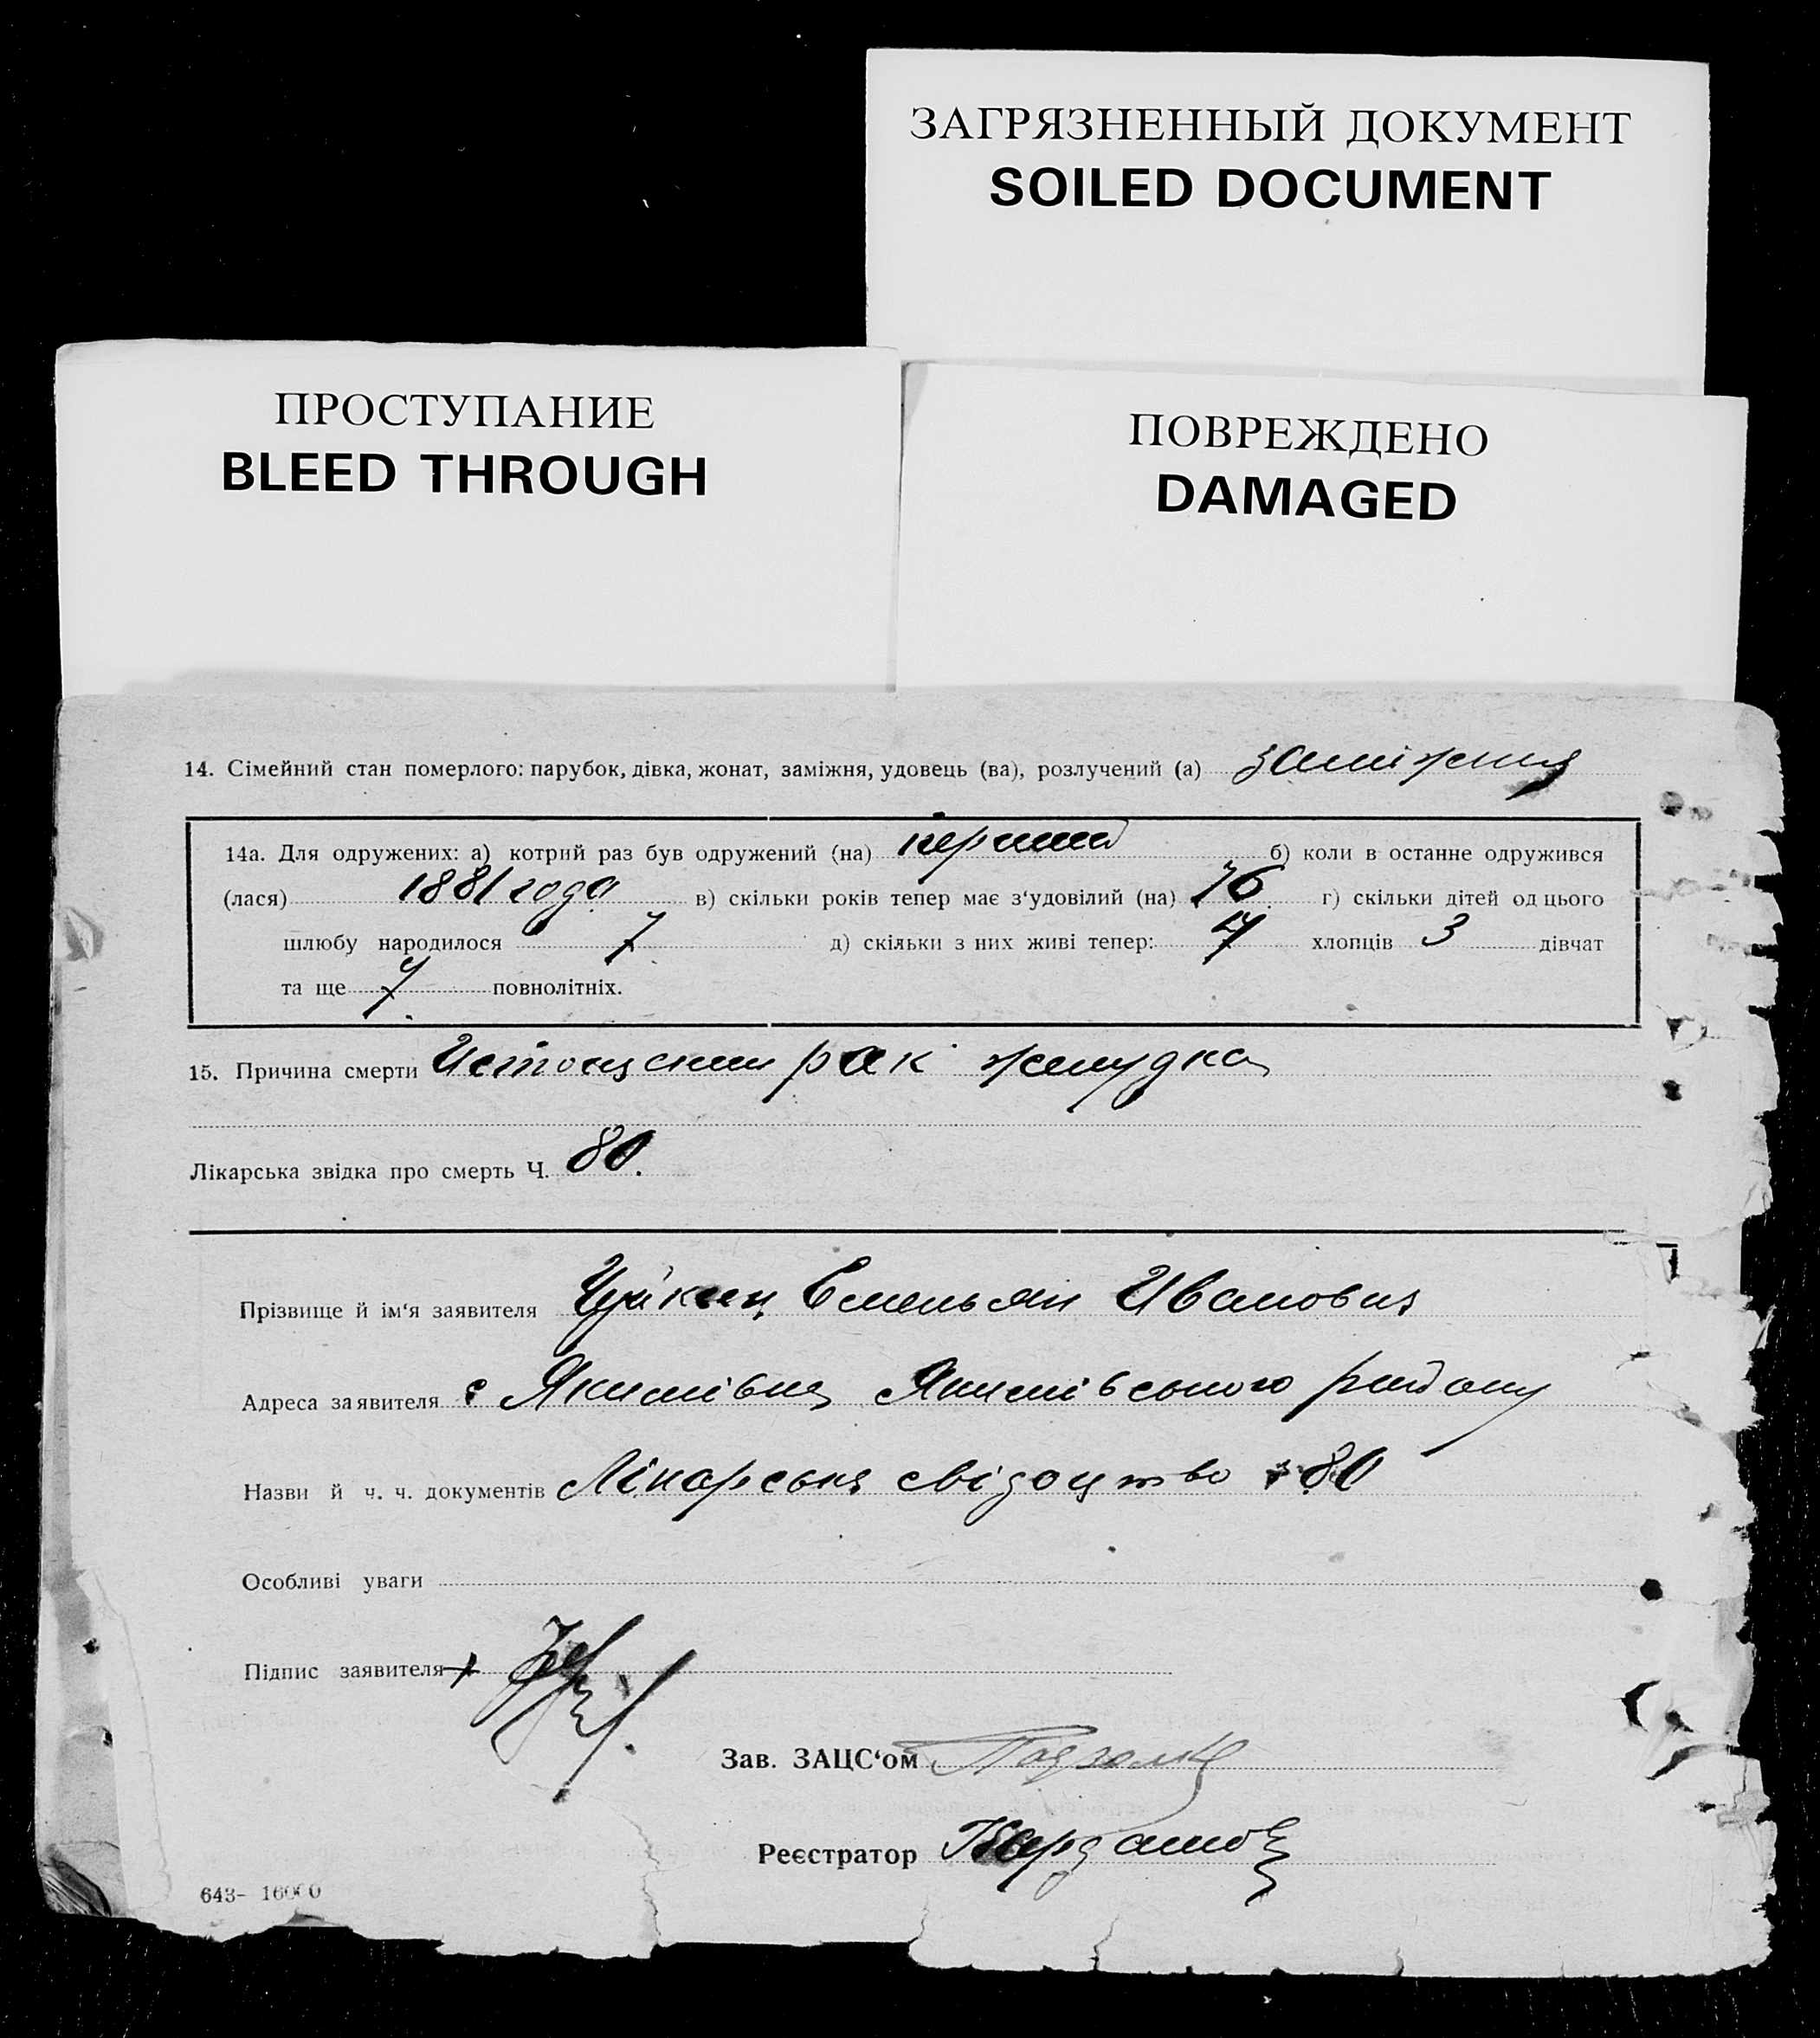 ЗАГРЯЗНЕННЫЙ ДОКУМЕНТ
SOILED DOCUMENT
ПРОСТУПАНИЕ
BLEED THROUGH
ПОВРЕЖДЕНО
DAMAGED
14. Сімейний стан померлого: парубок, дівка, жонат, заміжня, удовець (ва), розлучений (а) заміжня
14а. Для одружених: а) котрий раз був одружений (на) перший б) коли в останне одружився
(лася) 1881 года в) скільки років тепер має з‘удовілий (на) 76 г) скільки дітей од цього
шлюбу народилося 7 д) скільки з них живі тепер: 4 хлопців 3 дівчат
та ще 7 повнолітніх.
15. Причина смерти рак желудка
Лікарська звідка про смерть Ч. 80.
Прізвище й ім‘я заявителя Емельян Иванович
Адреса заявителя с Якимівка Якимівського району
Назви й ч. ч. документів Лікарське свідоцтво 80
Особливі уваги
Підпис заявителя
Зав. ЗАЦС‘ом
Реєстратор
643- 16000